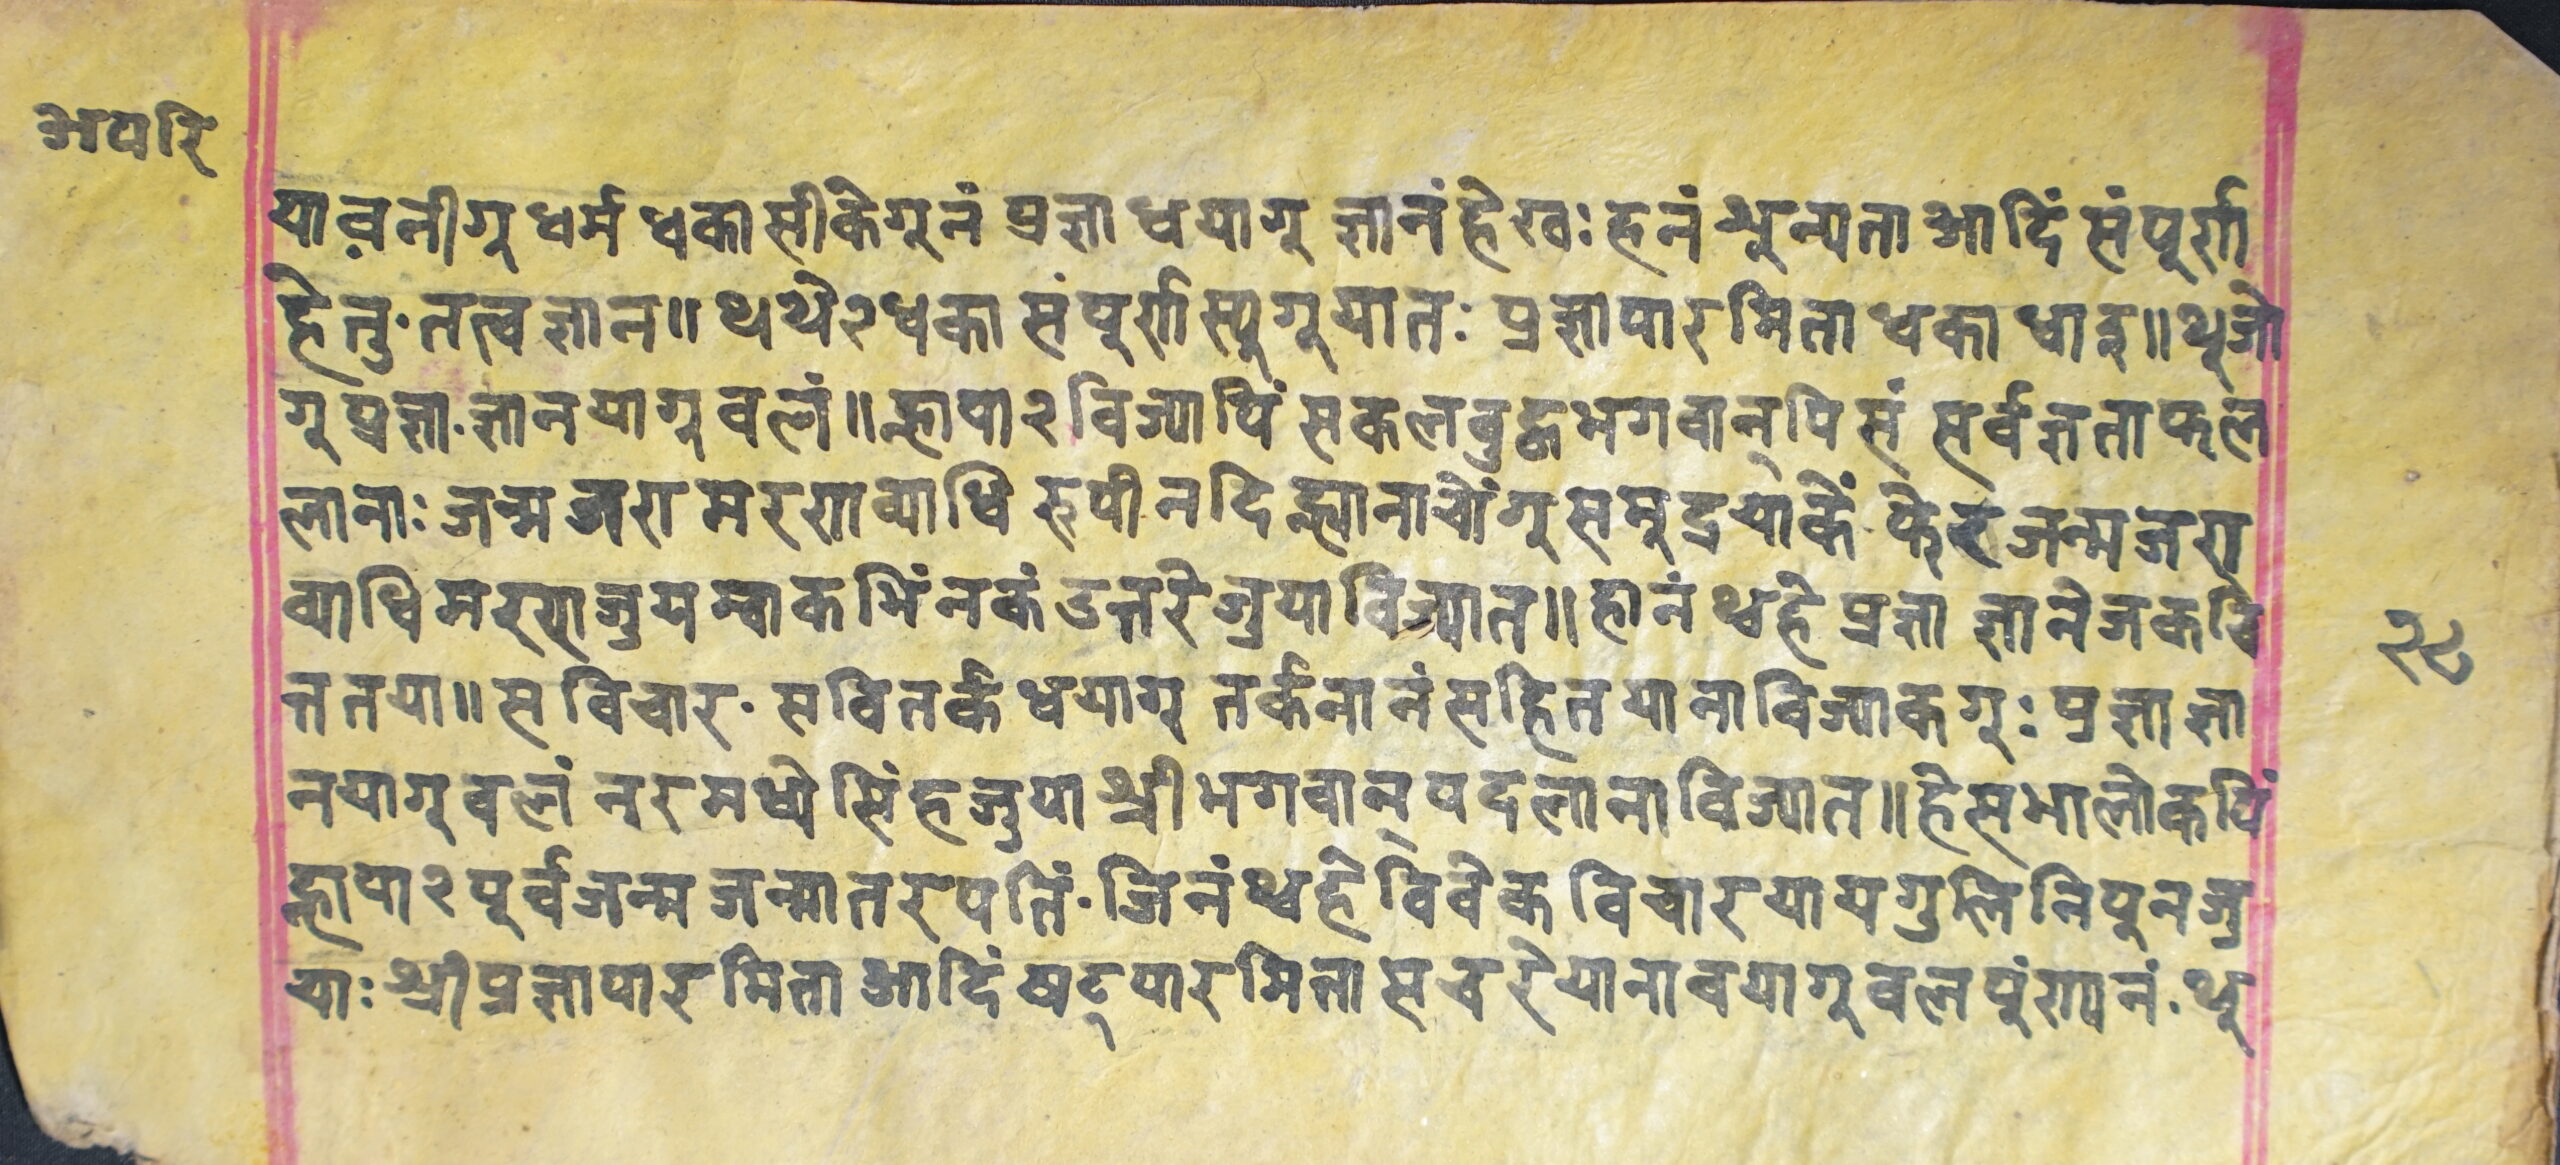 अपरि
याव़नीगु धर्म धका सीकेगुनं प्रज्ञा धयागु ज्ञानं हे खः हनं शून्यता आदिं संपूर्ण
हेतु· तत्व ज्ञान॥ थथे२धका संपूर्ण स्यूगूयातः प्रज्ञापारमिता धका धाइ॥ थूजो
गु प्रज्ञा·ज्ञानयागु वलं॥ ह्नापा२ विज्यापिं सकल बुद्ध भगवान्‌पिसं सर्वज्ञता फल
लानाः जन्म जरा मरण व्याधि रूपी नदि ह्यानाचोंगु समुद्रयाकें फेह जन्म जरा
व्याधि मरण जुयम्वाक भिंनकं उत्तरे जुयाविज्यात॥ हानं थ्व हे प्रज्ञा ज्ञानेजक चि
त्ततया॥ सविचार· सवितर्क धयागु तर्कनानं सहितयाना विज्याकगुः प्रज्ञा ज्ञा
नयागु वलं नरमध्ये सिंहजुया श्री भगवान् पद लानाविज्यात॥ हे सभालोकपिं
ह्नापा२ पूर्वजन्म जन्मातरपतिं· जिनं थ्वहे विवेक विचारयाय गुलि निपुनजु
याः श्री प्रज्ञापारमिता आदिं षट्‌पारमिता सचरेयानावयागु वल पुंण्यनं· थु
२९